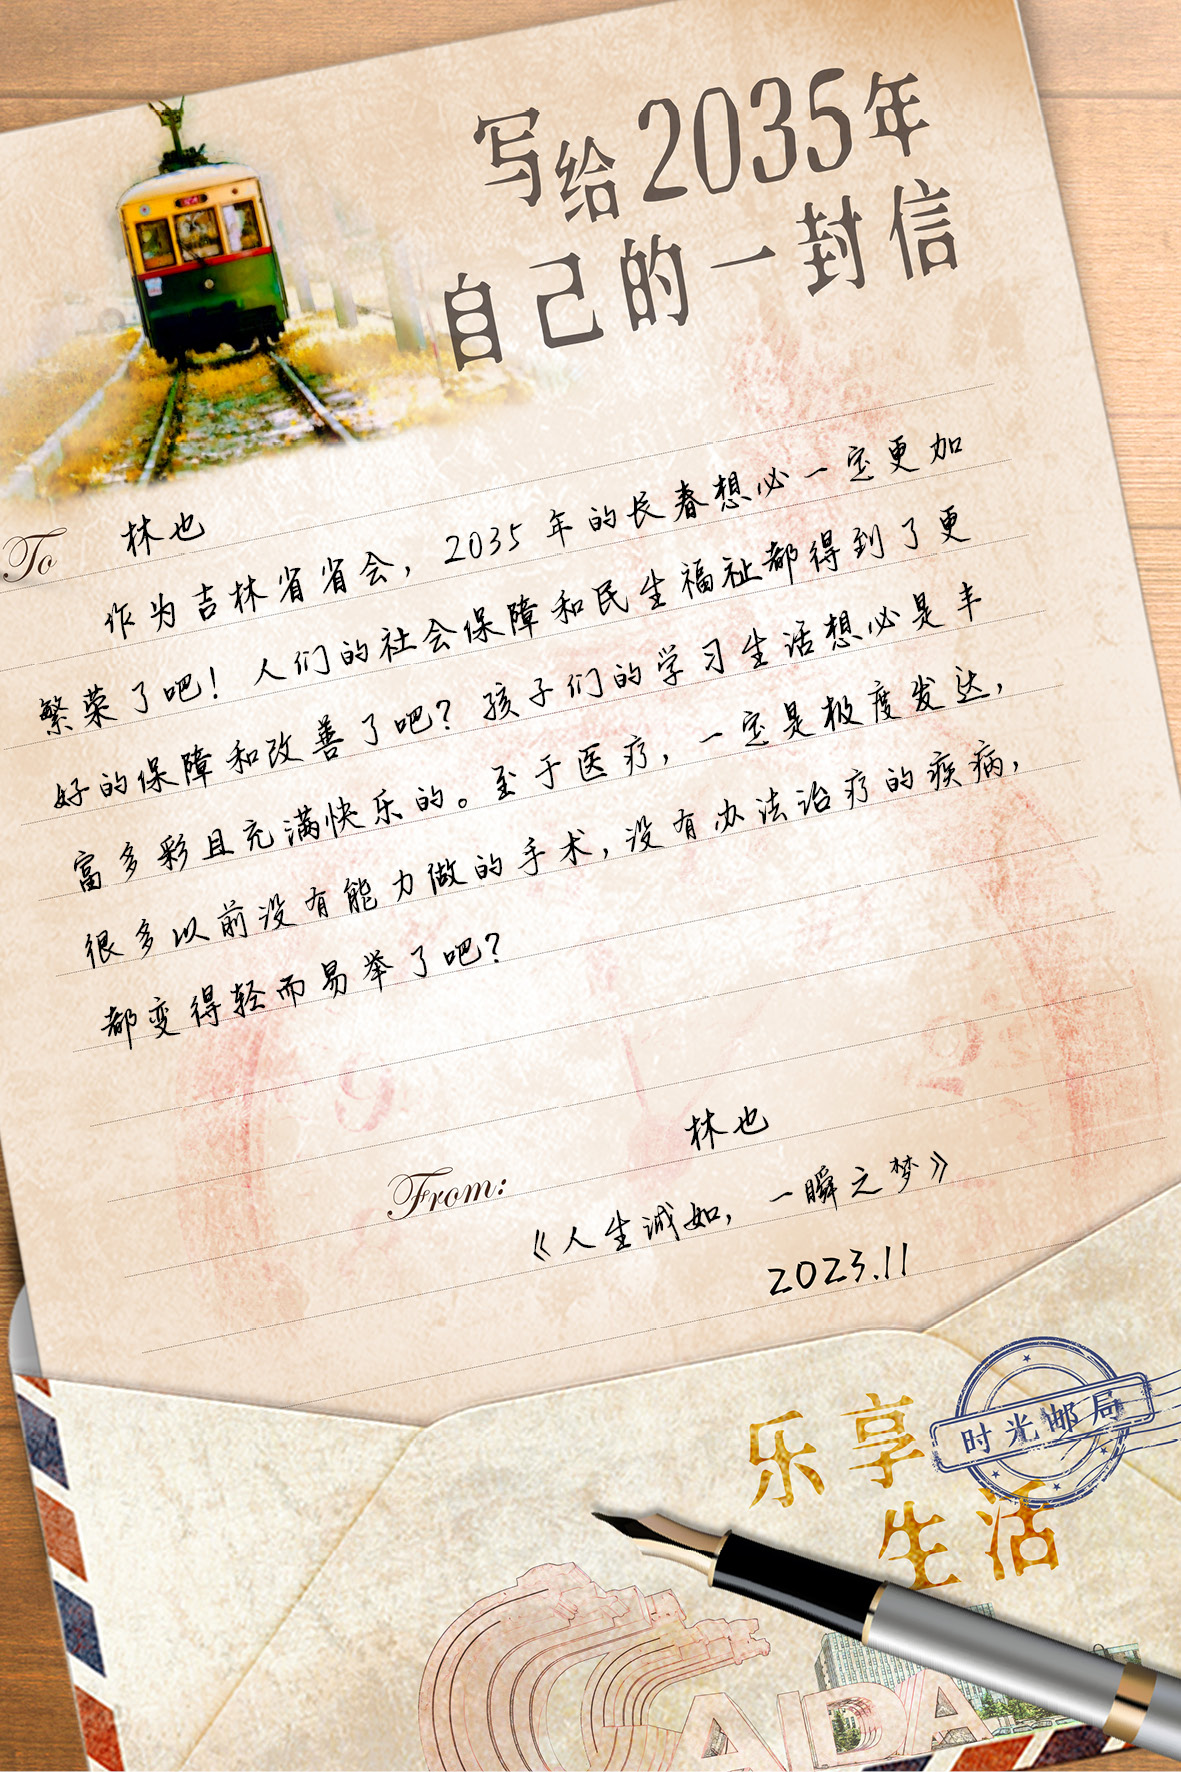 写给2035年
自己的一封信
To 林也
作为吉林省省会，2035年的长春想必一定更加
繁荣了吧！人们的社会保障和民生福祉都得到了更
好的保障和改善了吧？孩子们的学习生活想必是丰
富多彩且充满快乐的。至于医疗，一定是极度发达，
很多以前没有能力做的手术，没有办法治疗的疾病，
都变得轻而易举了吧？
林也
From:
《人生诚如，一瞬之梦》
2023.11
乐享
生活
时光邮局
CAIDA